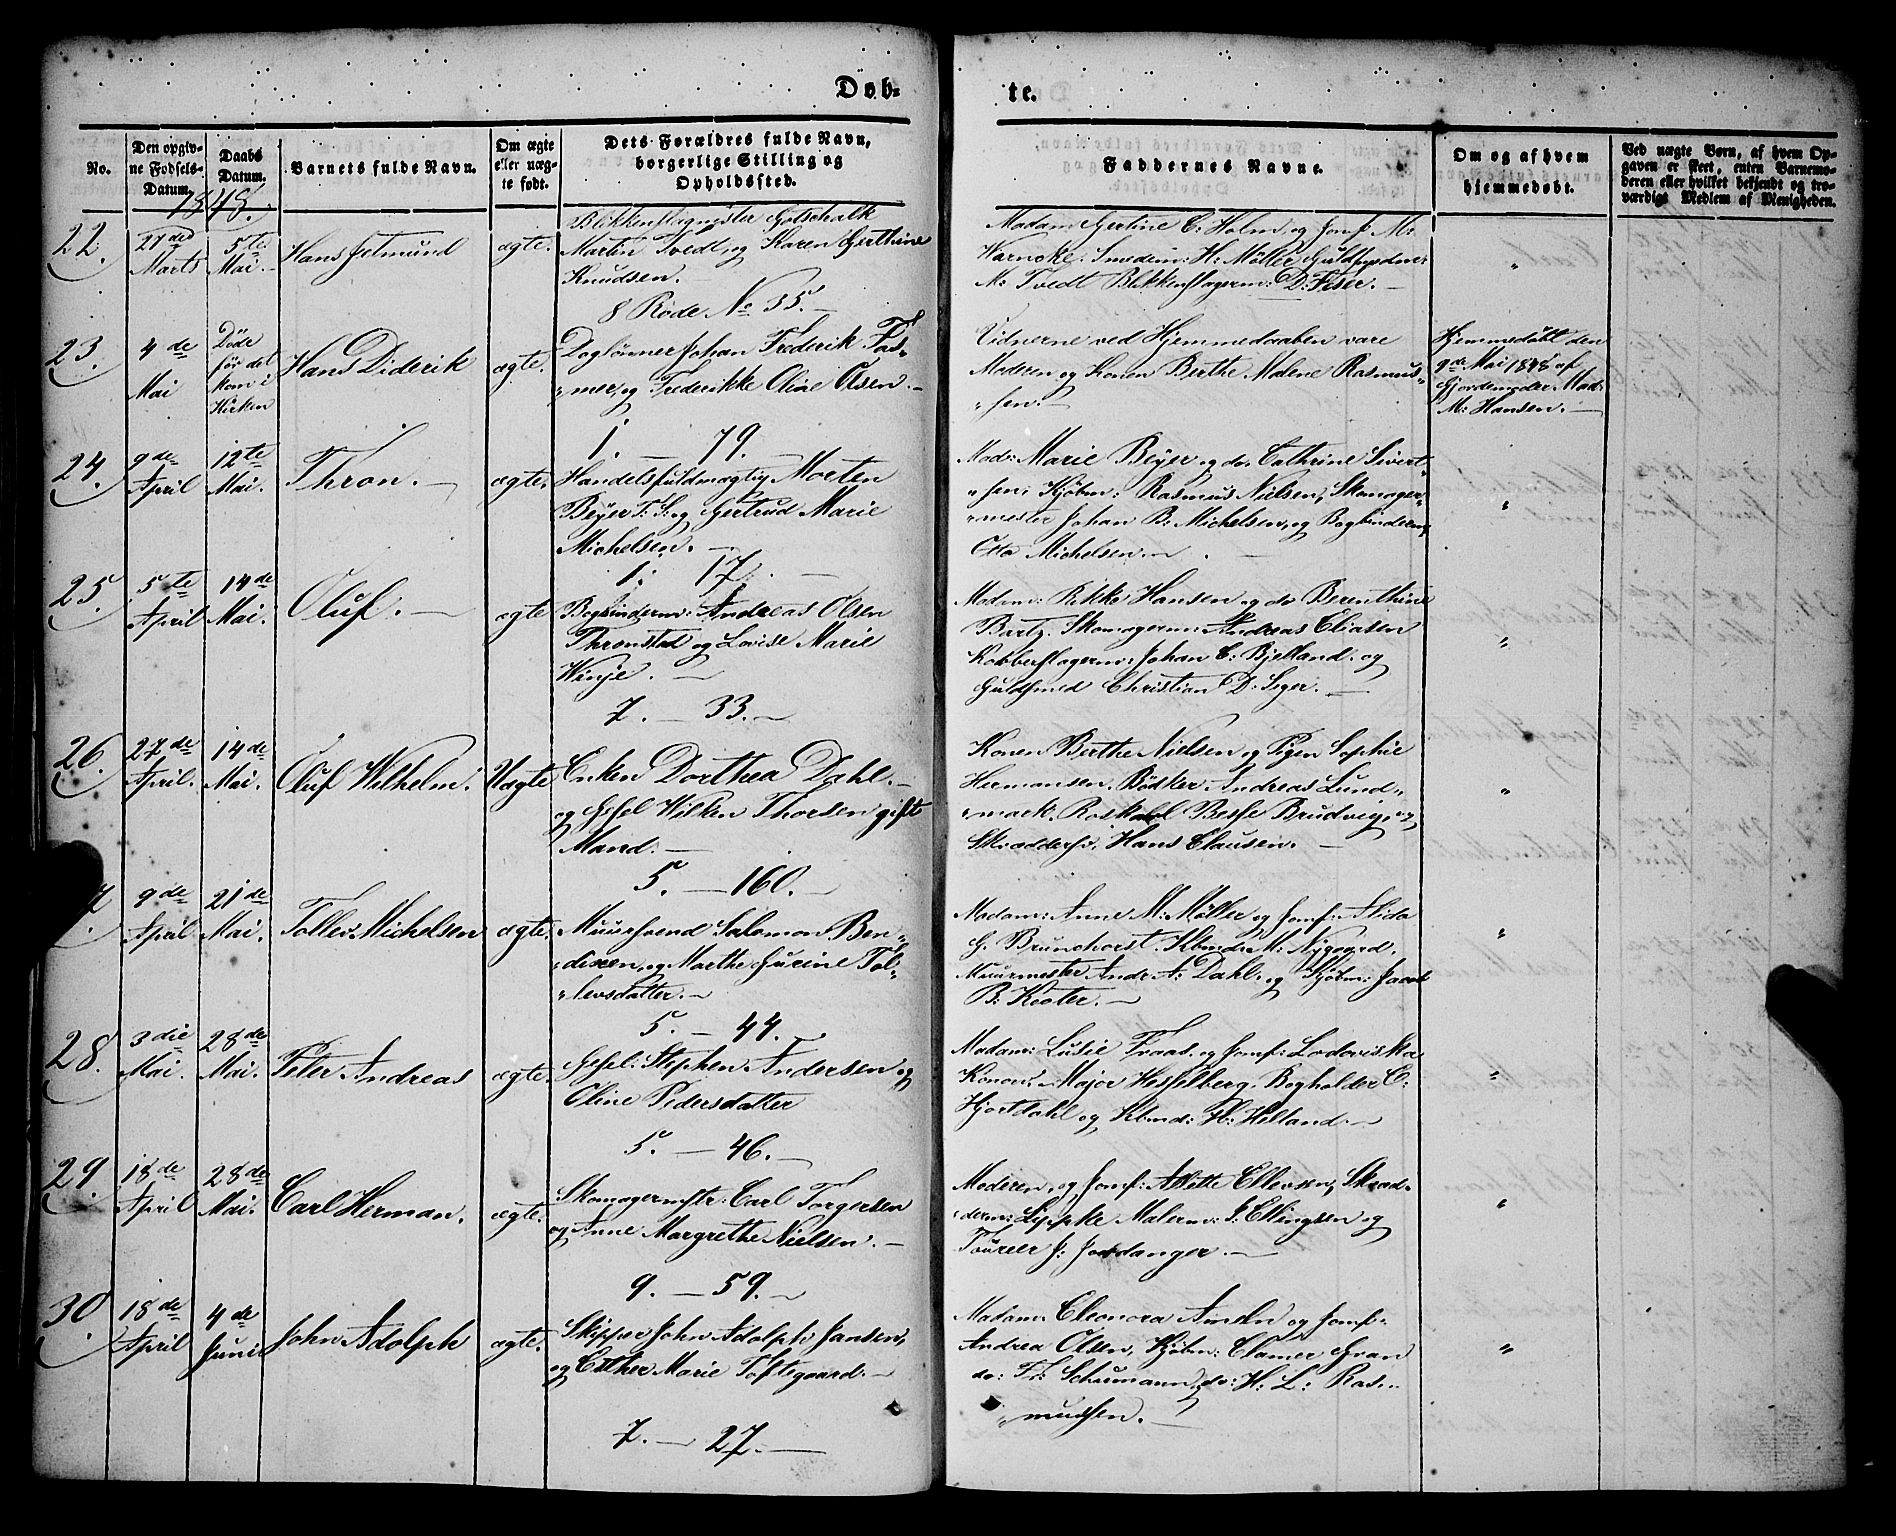 Døb=
te.
No.
Den opgiv-
ne Fødsels-
Datum.
Daabs
Datum.
Barnets fulde Navn.
Om ægte
eller uæg-
te født.
Dets Forældres fulde Navn,
borgerlige Stilling og
Opholdssted.
Faddernes Navne.
Om og af hvem
hjemmedøbt.
Ved uægte Børn, af hvem Op-
gaven er skeet, enten Barnemo-
deren eller hvilket bekjendt og tro-
værdigt Medlem af Menigheden.
1848.
22.
27de
Marts
5te
Mai.
Hans Jetmund
ægte.
Blikkenslagmester Gotschalk
Martin Tvedt, og Karen Gerthine
Knudsen.
8 Rode No 35.
Madam Gertine C. Holm og Jomf: M:
Warncke. Smedem: H: Møller
M: Tvedt Blikkenslagerm: D:
"
23.
4de
Mai
Døde
før det
kom i
Kirken
Hans Diderik
ægte.
Daglønner Johan Frederik Tas-
"mer, og Frederikke Oline Olsen.
1. — 79.
Vidnerne ved Hjemmedaaben vare
Moderen og Konen Berthe Malene Rasmus-
"sen.
Hjemmedøbt den
9de Mai 1848 af
Gjordemoder Mad:
M: Hansen.
24.
9de
April
12te
Mai.
Thron.
ægte.
Handelsfuldmægtig Morten
Beyer T. S: og Gertrud Marie
Michelsen.
1. 17.
Mad: Marie Beyer og do. Cathrine Sivert-
"sen, Kjøbm: Rasmus Nielsen, Skomager-
"mester Johan B: Michelsen, og Bogbinderm:
Otto Michelsen.
"
25.
5te
April
14de
Mai.
Oluf.
ægte
Bogbinderm: Andreas Olsen
Thronstad og Lovise Marie
Winje.
7. — 33.
Madam: Rikke Hansen og do Berenthine
Bartz. Skomagerm: Andreas Eliasen
Kobberslagerm: Johan C: Bjelland. og
Guldsmed Christian D: Seger.
"
26.
27de
April.
14de
Mai.
Oluf Wilhelm.
Uægte
Enken Dorthea Dahl.
og Gesel Wilken Thorsen gift
Mand.
5. — 160.
Konen Berthe Nielsen og Pigen Sophie
Hermansen. Bødker Andreas Lund-
"mark, Roskarl Besse Brudvig, og
Skræddersv: Hans Clausen.
"
7
9de
April
21de
Mai.
Tollev Michelsen
ægte.
Muursvend Salomon Ben-
"dixen, og Marthe Gurine Tol-
"levsdatter.
5. — 44.
Madam: Anne M: Møller og Jomf: Alida
G. Brunchorst. Kbmd: M: Nygaard,
Muurmester Andr: A: Dahl. og Kjøbm: Jacob
B: Koster.
"
28.
3die
Mai.
28de
Mai.
Peter Andreas
ægte.
Gesel: Stephen Andersen og
Oline Pedersdatter
5. — 46.
Madam: Lusie Fraas, og Jomf: Lodoviska
Konow. Major Hesselberg. Bogholder C:
Hjortdahl og Kbmd: H: Helland.
"
29.
18de
April
28de
Mai.
Carl Herman.
ægte.
Skomagermstr: Carl Torgersen
og Anne Margrethe Nielsen.
9. — 59.
Moderen, og Jomf: Alette Ellevsen, Skræd-
"derm: Lippke Malerm: J: Ellingsen og
Tourier J: Jordanger.
"
30.
18de
April
4de
Juni
John Adolph
ægte.
Skipper John Adolph Jansen,
og Esther Marie Toftegaard.
7. — 27.
Madam: Eleonora Ameln og Jomf.
Andrea Olsen, Kjøbm: Clamer Gran
do: Fr: Schumann, do: H: L: Ras-
"mussen.
"